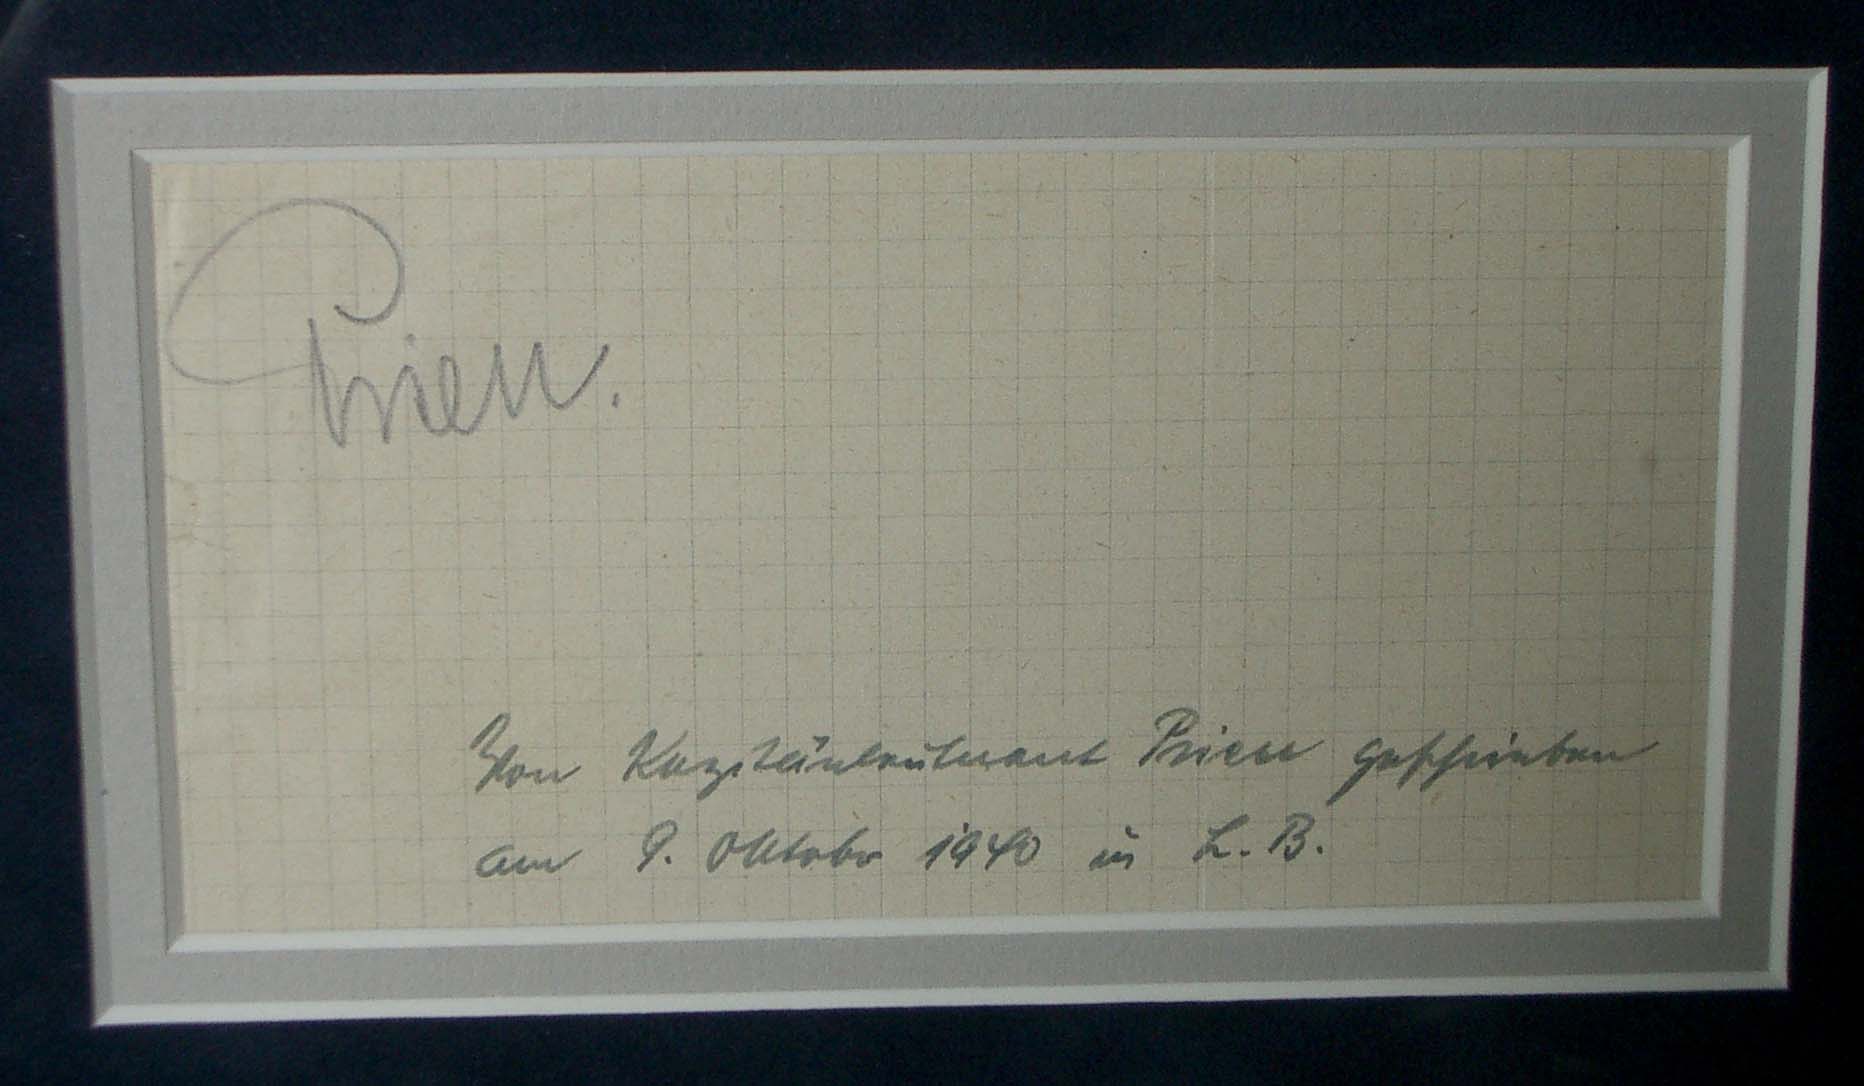 Prien.
Von Kapitänleutnant Prien geschrieben
am 9. Oktober 1940 in L. B.